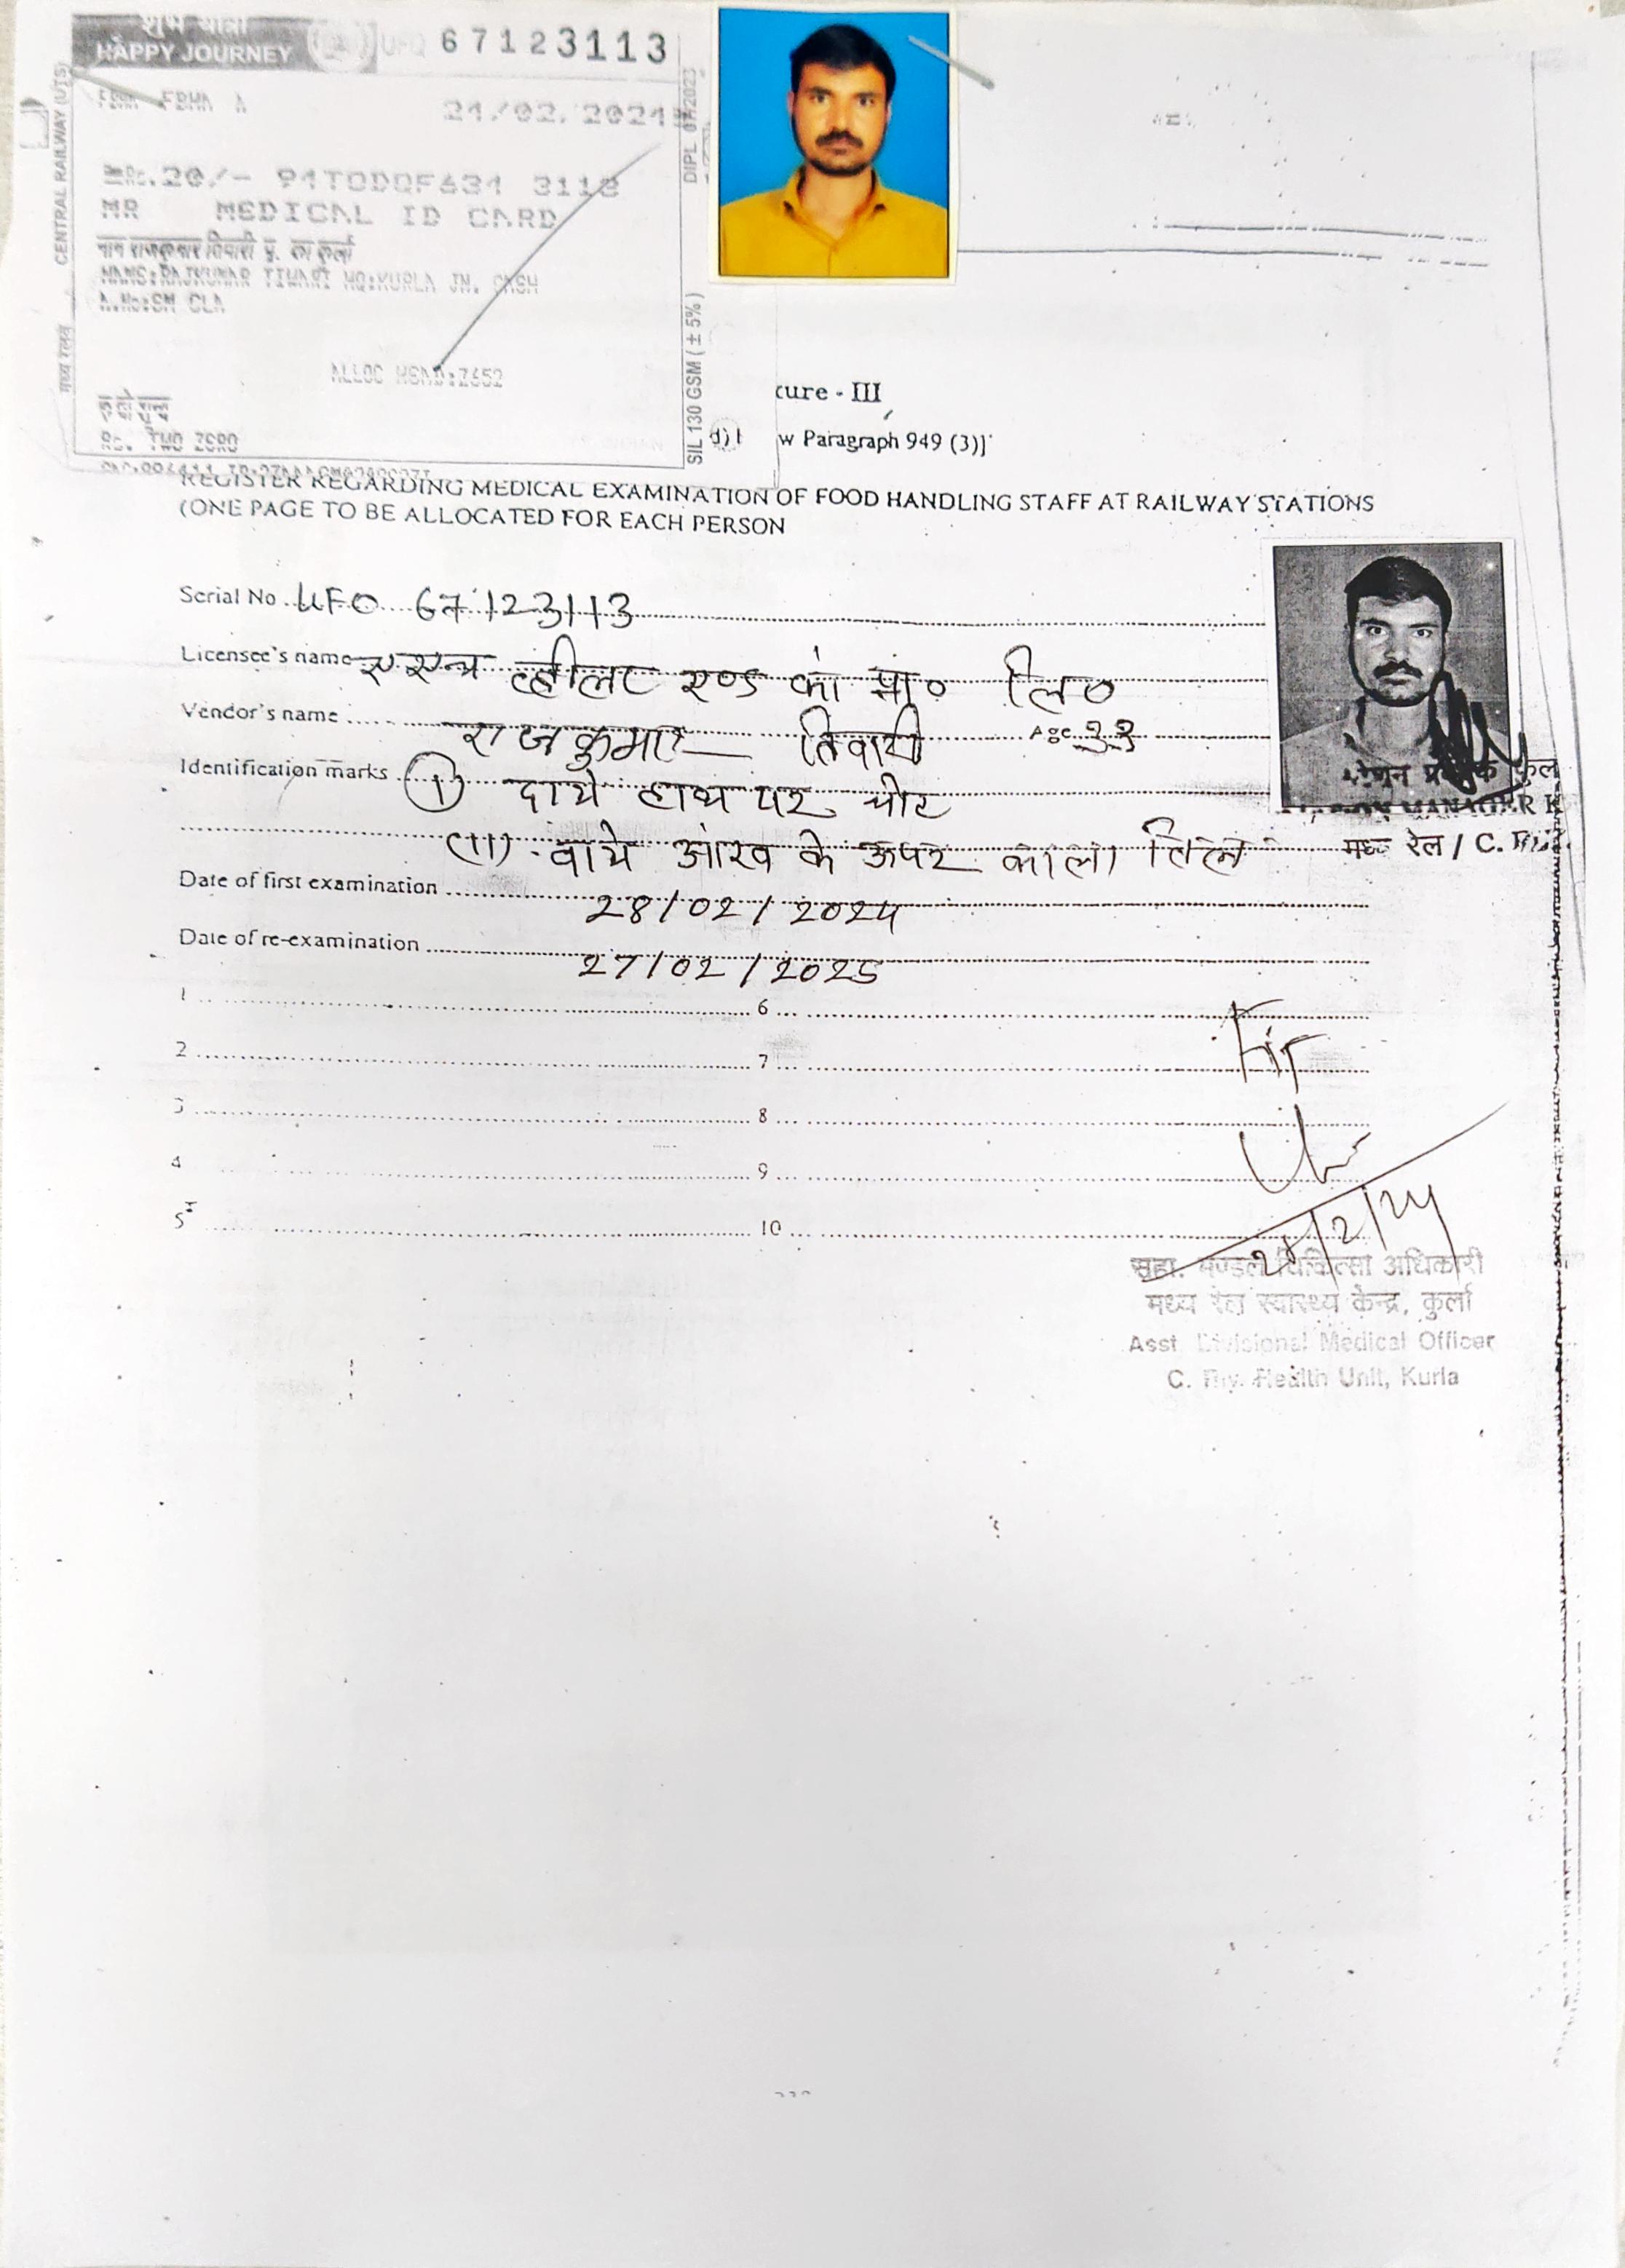 शुभ यात्रा
HAPPY JOURNEY
UFQ 67123113
CENTRAL RAILWAY (UTS)
मध्य रेलवे
24/02/2024
DIPL 07/2023
Rs.20/- 94TODQF634 3113
MR MEDICAL ID CARD
नाम राजकुमार तिवारी मु. का कुर्ला
NAME:RAJKUMAR TIWARI HQ:KURLA JN. CASH
A.No:SM CLA
SIL 130 GSM ( ± 5%)
ALLOC HEAD:Z652
रु दो शून्य
Rs. TWO ZERO
cure - III
w Paragraph 949 (3)]
REGISTER REGARDING MEDICAL EXAMINATION OF FOOD HANDLING STAFF AT RAILWAY STATIONS
(ONE PAGE TO BE ALLOCATED FOR EACH PERSON
Serial No UFO 67123113
Licensee's name ए एच व्हीलर एण्ड कां प्रा० लि०
Vendor's name राजकुमार तिवारी Age 33
Identification marks (i) दाये हाथ पर चोट
(ii) वाये आंख के ऊपर काला तिल
मध्य रेल / C.
Date of first examination 28/02/2024
Date of re-examination 27/02/2025
1 6
2 7
3 8
4 9
5 10
Fit
28/2/24
सहा. मण्डल चिकित्सा अधिकारी
मध्य रेल स्वास्थ्य केन्द्र, कुर्ला
Asst. Divisional Medical Officer
C. Rly. Health Unit, Kurla